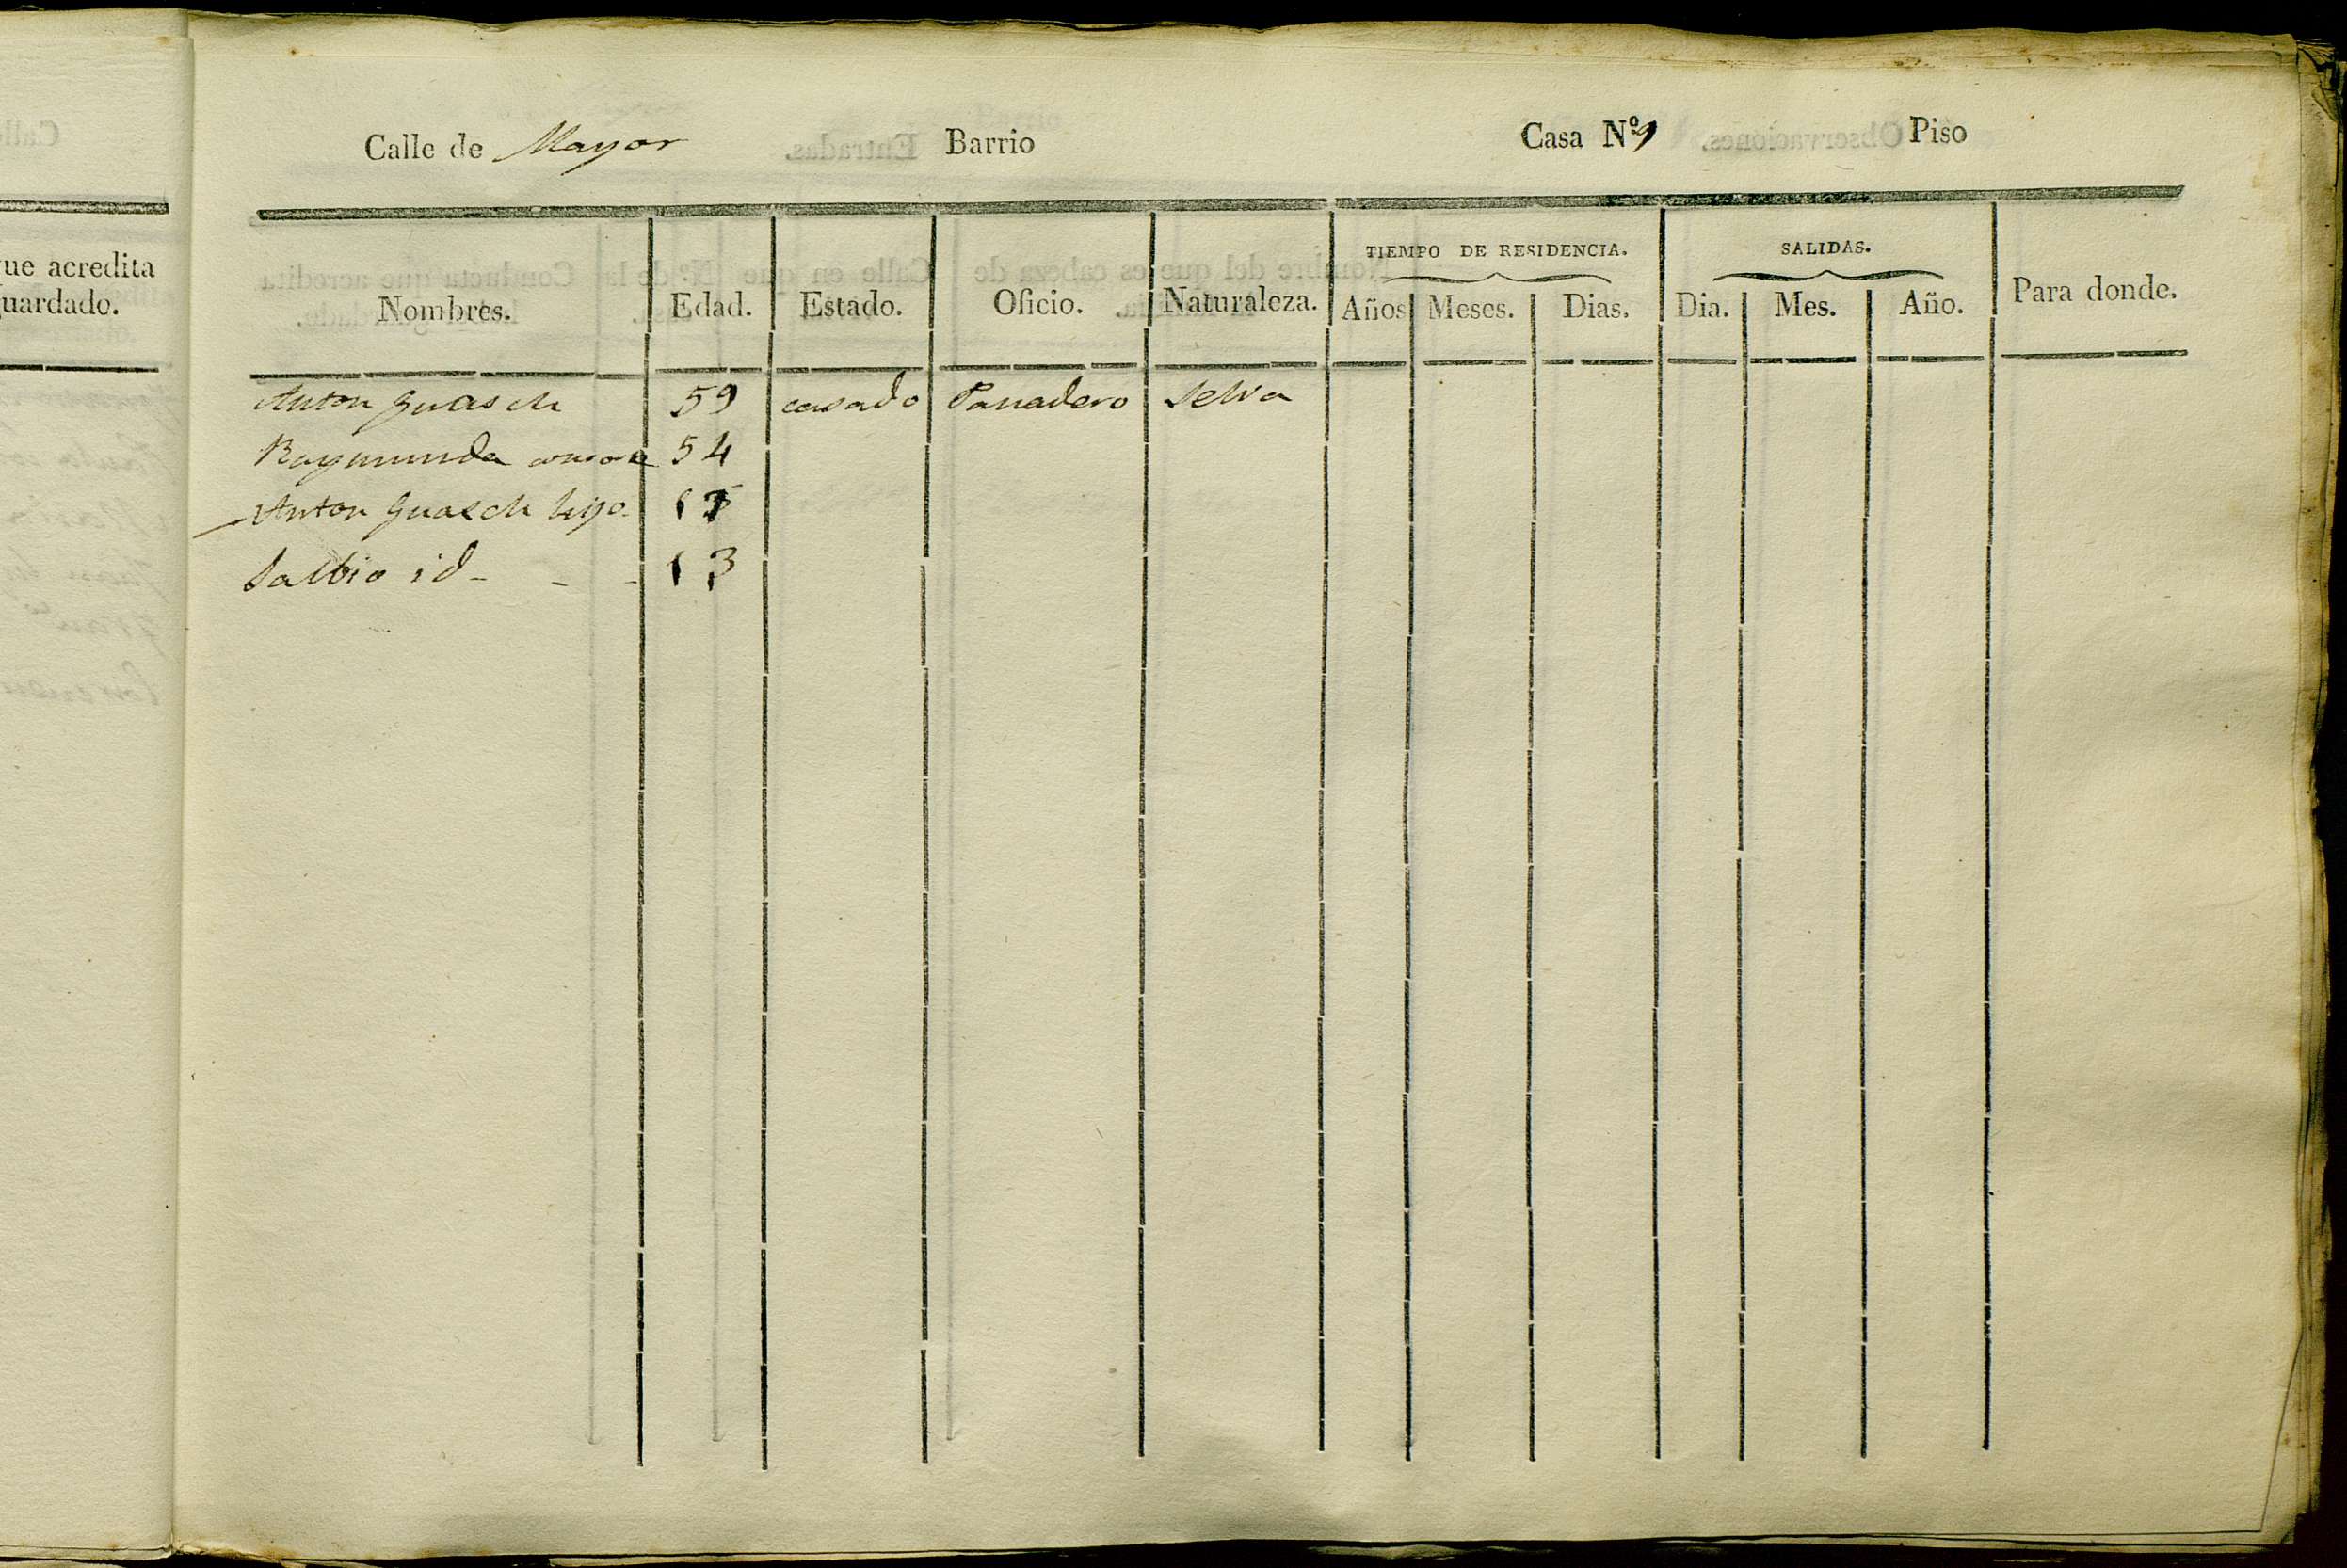 ue acredita
uardado.
Calle de Mayor Barrio Casa Nº 9 Piso
TIEMPO DE RESIDENCIA. SALIDAS.
Nombres. Edad. Estado. Oficio. Naturaleza. Años Meses. Dias. Dia. Mes. Año. Para donde.
Anton Guasch 59 casado Panadero Selva
Raymunda consorte 54
Anton Guasch hijo
Salbio id - - - 13